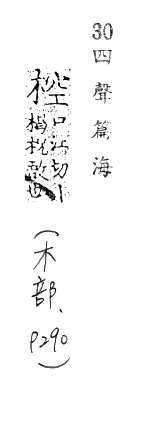 30 四聲篇海
椌 口江切
楬柷敔也
（木部、P290）